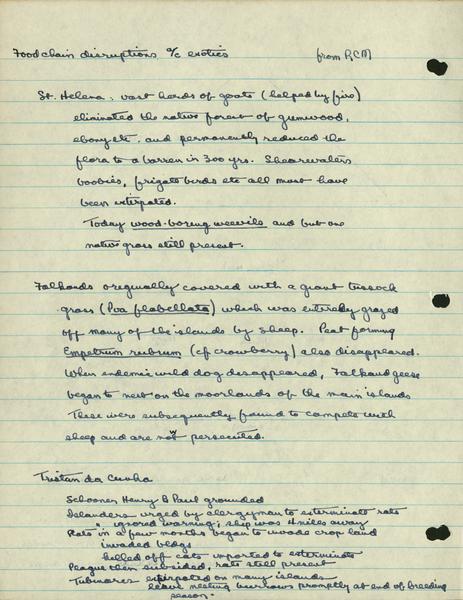 Food chain disruptions o/c exotics from RCM
St. Helena; vast herds of goats (helped by fire)
eliminated the native forest of gumwood,
ebony etc. and permanently reduced the
flora to a barren in 300 yrs. Shearwaters
boobies, frigate birds etc all must have
been extirpated.
Today wood-boring weevils and but one
native grass still present.
Falklands originally covered with a giant tussock
grass (Poa flabellata) which was entirely grazed
off many of the islands by sheep. Peat forming
Empetrum rubrum (cf crowberry) also disappeared.
When endemic wild dog disappeared, Falkland geese
began to nest on the moorlands of the main islands
These were subsequently found to compete with
sheep and are now persecuted.
Tristan da Cunha
Schooner Henry B Paul grounded
Islanders urged by clergyman to exterminate rats
" ignored warning; ship was 4 miles away
Rats in a few months began to invade crop land
invaded bldgs
killed off cats imported to exterminate
Plague then subsided, rats still present
Tubinares extirpated on many islands
leave nesting burrows promptly at end of breeding
season.